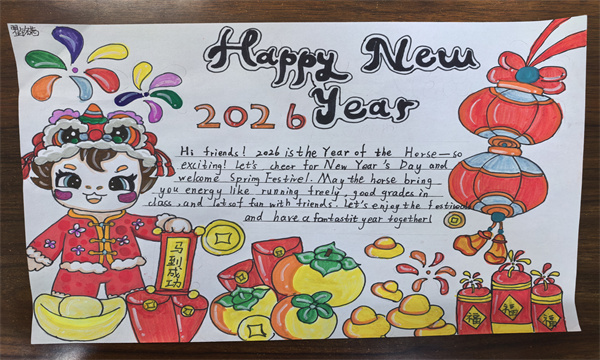 Happy New
Year
2026
Hi friends! 2026 is the Year of the Horse—so
exciting! Let's cheer for New Year's Day and
welcome Sprim Festirel. May the horse bring
you energy like running freely, good grades in
class, and lots of fun with friends. Let's enjoy the festivals
and have a fantastic year together!
马到成功
福
福
福